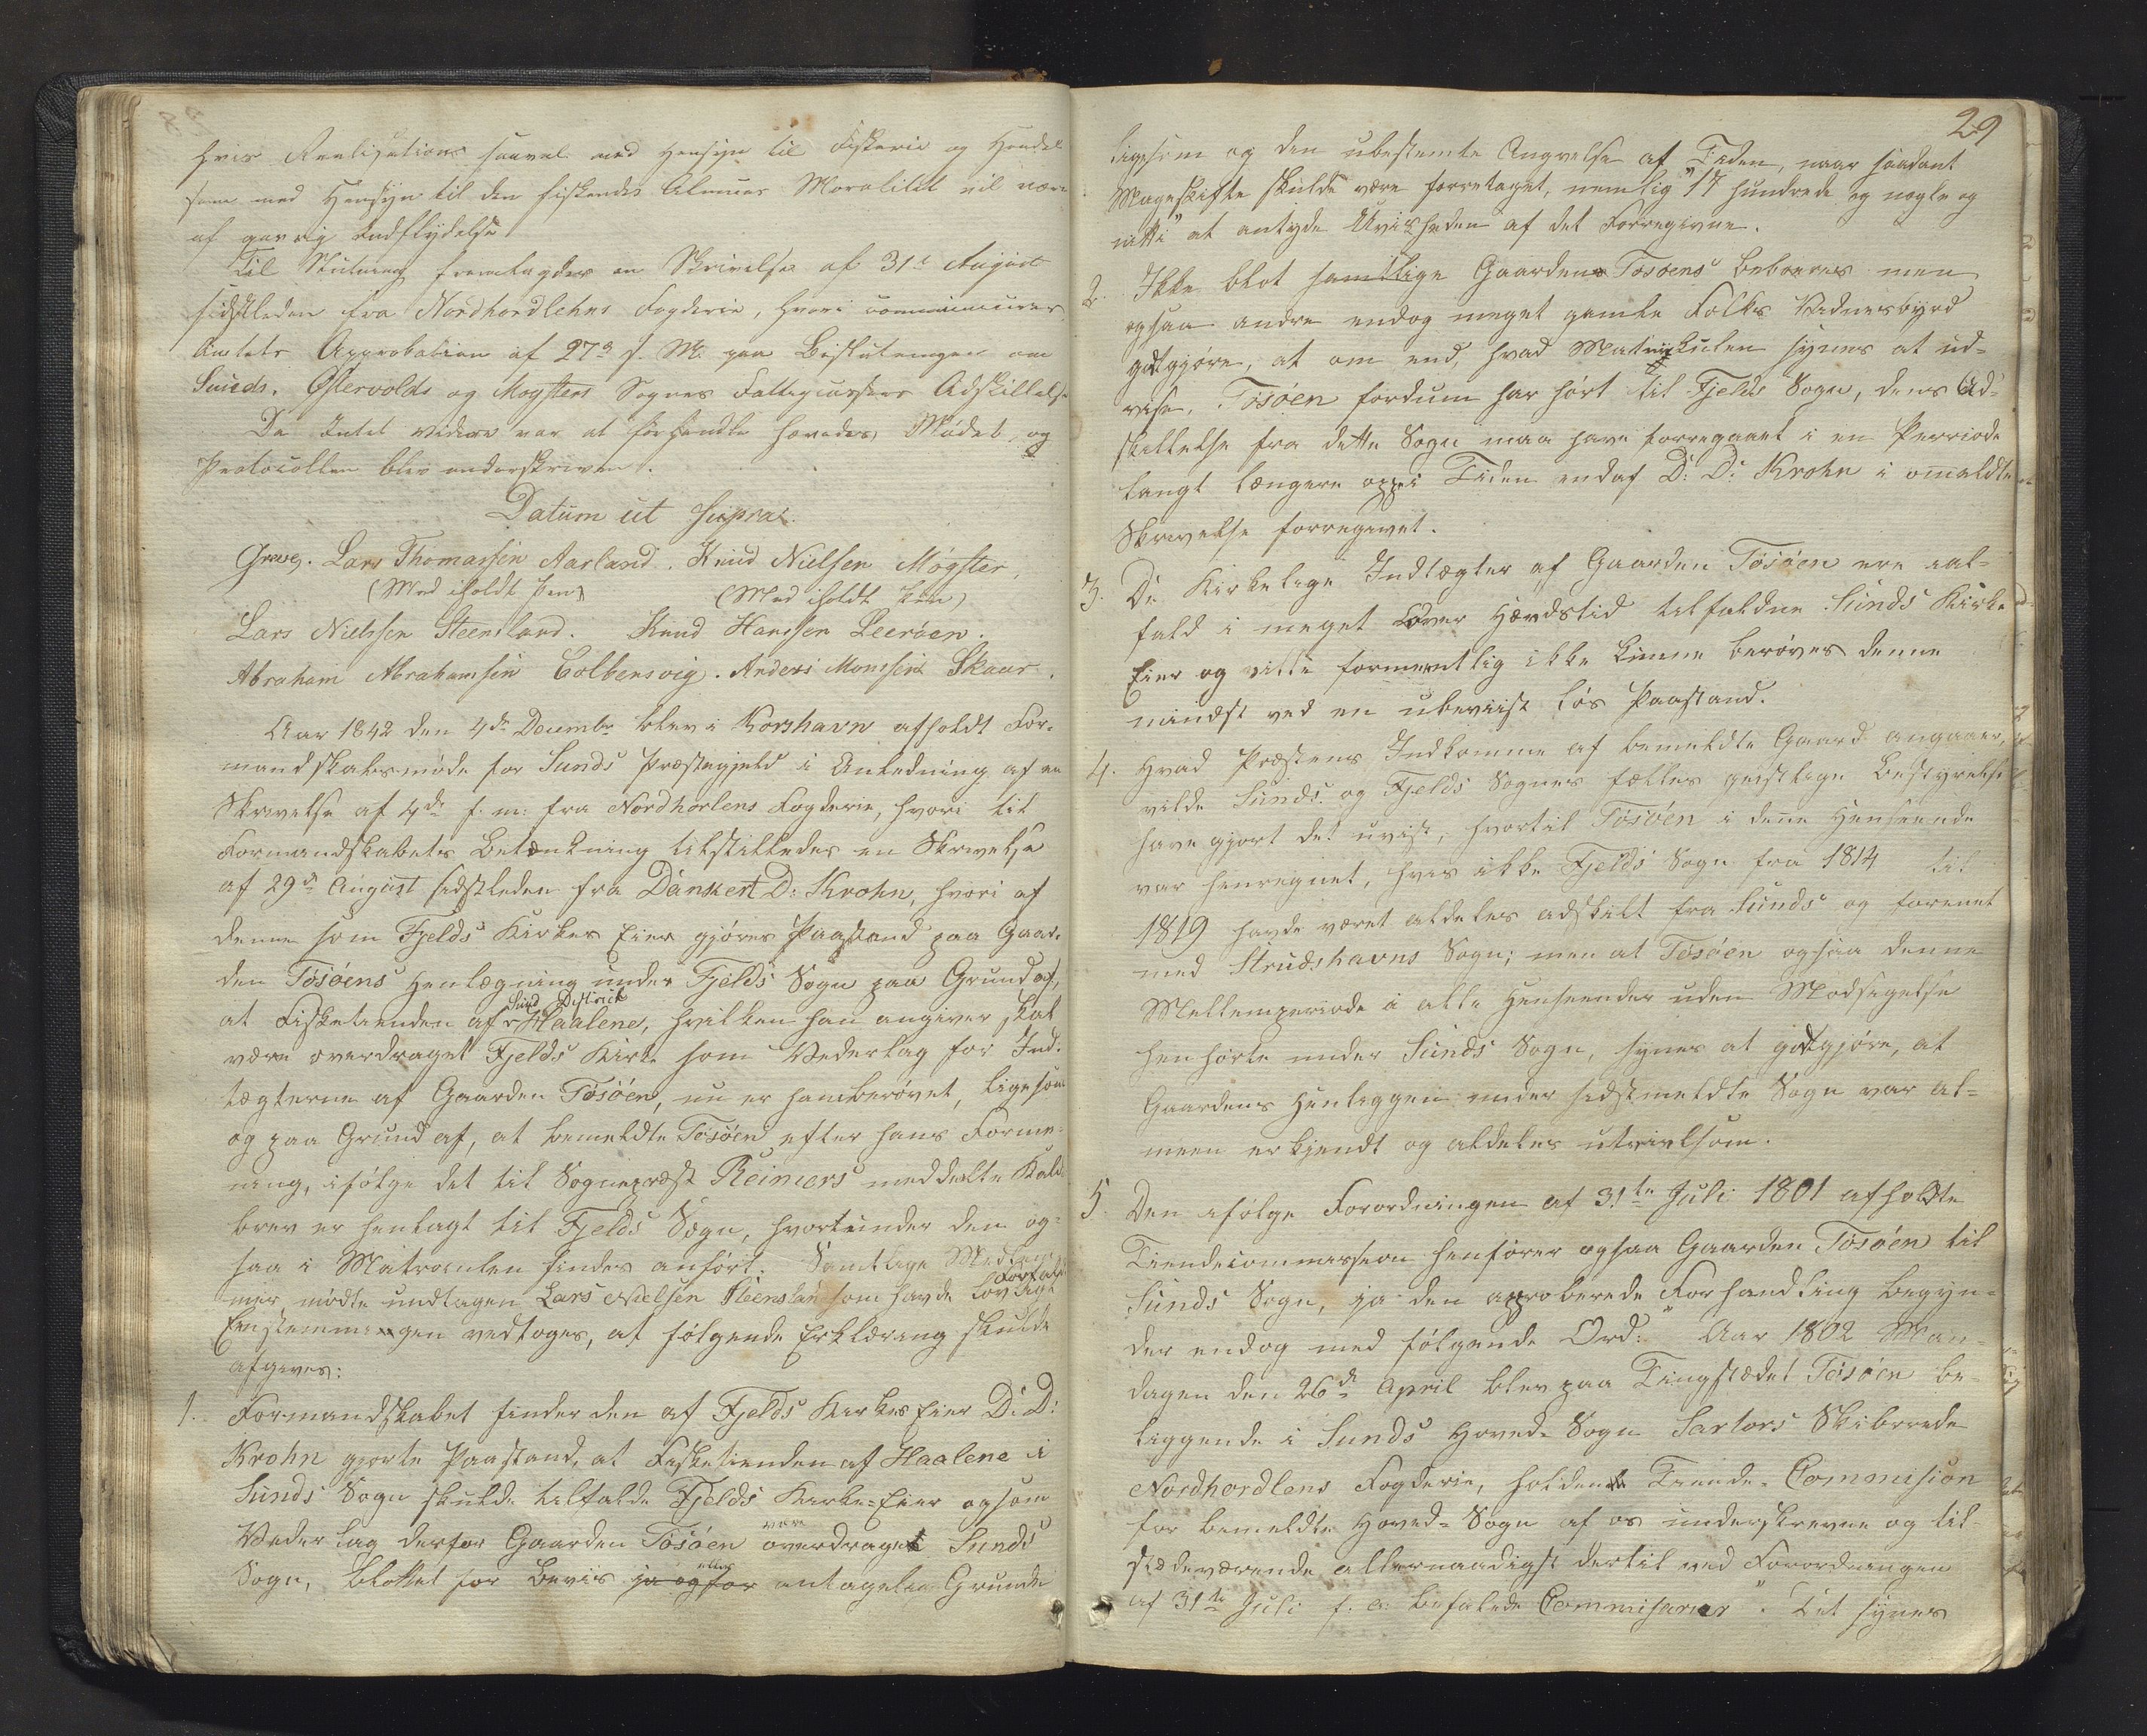 hvis Realisation saavel med Hensyn til Fiskerie og Handel
som med Hensyn til den fiskende Almues Moralitet vil være
af gavnlig Indflydelse
Til Slutning fremlagdes en Skrivelse af 31te August
sidstleden fra Nordhordlehns Fogderie, hvori communiceres
Amtets Approbation af 27de s. M. paa Beslutningen om
Sunds, Østervolds og Mogsters Sognes Fattigcassers Adskillelse
Da Intet videre var at forhandle hævedes Mødet og
Protocollen blev underskreven.
Datum ut supra.
Greve. Lars Thomassen Aarland. Knud Nielsen Mögster,
(Med iholdt Pen) (Med iholdt Pen)
Lars Nielsen Steensland. Knud Hanssen Leeröen.
Abraham Abrahamsen Colbensvig. Anders Monssen Skaar.
Aar 1842 den 4de Decembr blev i Korshavn afholdt For-
mandskabsmöde for Sunds Præstegjeld i Anledning af en
Skrivelse af 4de f. m. fra Nordhorlens Fogderie, hvori til
Formandskabets Betænkning tilstilledes en Skrivelse
af 29de August sidstleden fra Danckert D: Krohn, hvori af
denne som Fjelds Kirkes Eier gjöres Paastand paa Gaar-
den Tösöens Henlægning under Fjelds Sogn paa Grund af,
at Fisketienden af Sund District Haalene, hvilken han angiver skal
være overdraget Fjelds Kirke som Vederlag for Ind-
tægterne af Gaarden Tösöen, nu er ham berövet, ligesom
og paa Grund af, at bemeldte Tösöen efter hans Forme-
ning, ifölge det til Sognepræst Reimers meddeelte Kald-
brev er henlagt til Fjelds Sogn, hvorunder den og-
saa i Matriculen findes anfört. Samtlige Medlem-
mer mödte undtagen Lars Nielsen Steensland som havde lovligt Forfald
Eenstemmigen vedtoges, at fölgende Erklæring skulde
afgives:
1. Formandskabet finder den af Fjelds Kirkes Eier D: D:
Krohn gjorte Paastand, at Fisketienden af Haalene i
Sunds Sogn skulde tilfalde Fjelds Kirke-Eier og som
Vederlag derfor Gaarden Tösöen være overdraget Sunds
Sogn, blottet for Beviis ja og for eller antagelige Grunde
29
ligesom og den ubestemte Angivelse af Tiden, naar saadant
Mageskifte skulde være foretaget, nemlig "17 hundrede og nogle og
nitti" at antyde Uvisheden af det Foregivne.
2. Ikke blot samtlige Gaardens Tösöens Beboeres men
ogsaa andre endog meget gamle Folks Vidnesbyrd
godtgjöre, at om end, hvad Matrikulen synes at ud-
vise, Tösöen fordum har hört til Fjelds Sogn, dens Ad-
skillelse fra dette Sogn maa have foregaaet i en Perriode
langt længere op i Tiden end af D: D: Krohn i omeldte
Skrivelse forregivet.
3. De Kirkelige Indtægter af Gaarden Tösöen ere ial-
fald i meget over Hævdstid tilfaldne Sunds Kirke
Eier og ville formeentlig ikke kunne beröves denne
mindst ved en ubeviist lös Paastand.
4. Hvad Præstens Indkomme af bemeldte Gaard angaaer,
vilde Sunds og Fjelds Sognes fælles geistlige Bestyrelse
have gjort det uvist, hvortil Tösöen i denne Henseende
var henregnet, hvis ikke Fjelds Sogn fra 1814 til
1819 havde været aldeles adskilt fra Sunds og forenet
med Strudshavns Sogn; men at Tösöen ogsaa denne
Mellemperiode i alle Henseender uden Modsigelse
henhörte under Sunds Sogn, synes at godtgjöre, at
Gaardens Henliggen under sidstmeldte Sogn var al-
meen erkjendt og aldeles utvivlsom.
5. Den ifölge Forordningen af 31te Juli 1801 afholdte
Tiendecommission henförer ogsaa Gaarden Tösöen til
Sunds Sogn, ja den approberede Forhandling begyn-
der endog med fölgende Ord: "Aar 1802 Man-
dagen den 26de April blev paa Tingstædet Tösöen be-
liggende i Sunds Hoved-Sogn Sartors Skibrede
Nordhordlens Fogderie, holden Tiende-Commision
for bemeldte Hoved-Sogn af os underskrevne og til-
stædeværende allernaadigst dertil ved Forordningen
af 31te Juli f. a. befalede Commisarier". Det synes